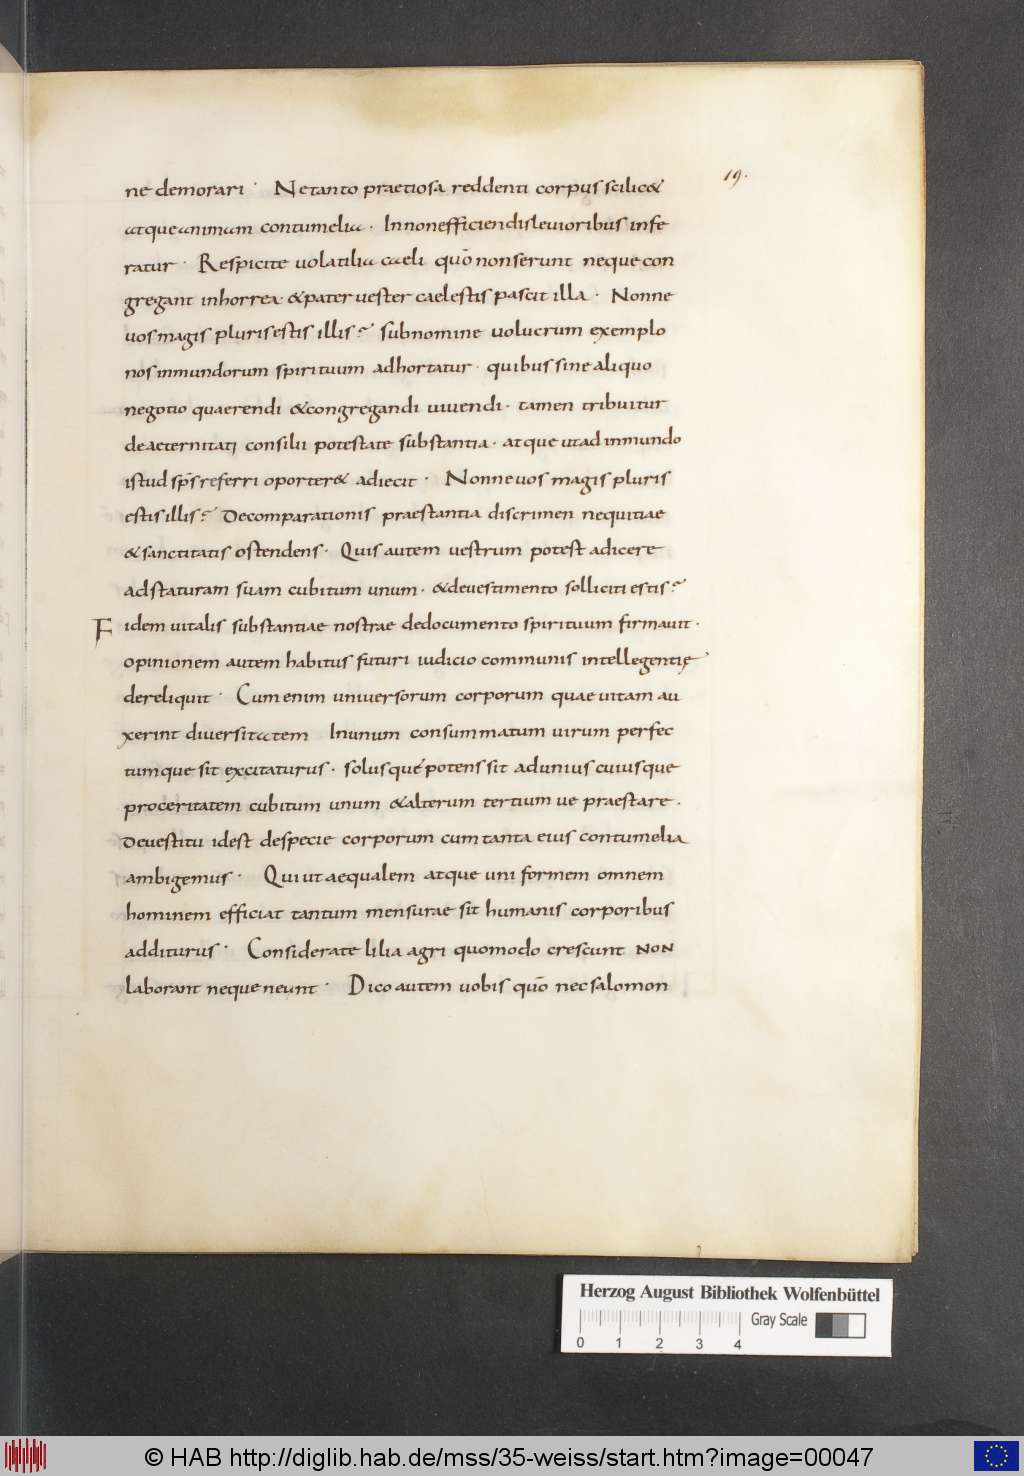 19.
ne demorari · Ne tanto praetiosa reddenti corpus scilic&
atque animam contumelia · In non efficiendis leuioribus infe
ratur · Respicite uolatilia caeli quō non serunt neque con
gregant in horrea · & pater uester caelestis pascit illa · Nonne
uos magis pluris estis illis? sub nomine uolucrum exemplo
nos inmundorum spirituum adhortatur · quibus sine aliquo
negotio quaerendi & congregandi uiuendi · tamen tribuitur
de aeternitati consilii potestate substantia · atque ut ad inmundo
istud sp̄s referri oporter& adiecit · Nonne uos magis pluris
estis illis? De comparationis praestantia discrimen nequitiae
& sanctitatis ostendens · Quis autem uestrum potest adicere
ad staturam suam cubitum unum · & de uestimento solliciti estis?
Fidem uitalis substantiae nostrae de documento spirituum firmauit ·
opinionem autem habitus futuri iudicio communis intellegentię
dereliquit · Cum enim uniuersorum corporum quae uitam au
xerint diuersitatem In unum consummatum uirum perfec
tumque sit excitaturus · solusque potens sit ad unius cuiusque
proceritatem cubitum unum & alterum tertiumue praestare ·
De uestitu id est de specie corporum cum tanta eius contumelia
ambigemus · Qui ut aequalem atque uniformem omnem
hominem efficiat tantum mensurae sit humanis corporibus
additurus · Considerate lilia agri quomodo crescunt NON
laborant neque neunt · Dico autem uobis quō nec salomon
Herzog August Bibliothek Wolfenbüttel
Gray Scale
0 1 2 3 4
© HAB http://diglib.hab.de/mss/35-weiss/start.htm?image=00047